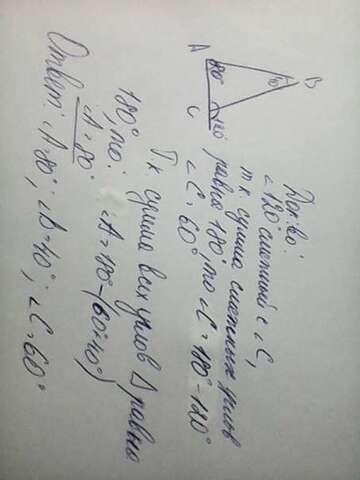 A
B
C
80°
40°
120°
Док-во:
∠120° смежный с ∠C,
т к. сумма смежных углов
равна 180°, то ∠C = 180° - 120°
∠C = 60°
Т к сумма всех углов Δ равны
180°, то: ∠A = 180° - (60° + 40°)
∠A = 80°
Ответ: ∠A = 80°; ∠B = 40°; ∠C = 60°